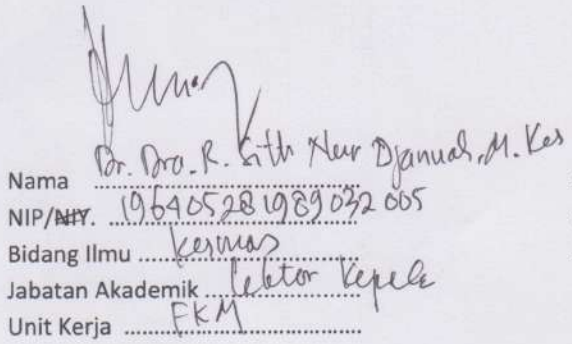 Nama Dr. Dra. R. Sith Nur Djanuah, M. Kes
NIP/NIY. 196405281989032005
Bidang Ilmu Kesmas
Jabatan Akademik Lektor Kepala
Unit Kerja FKM